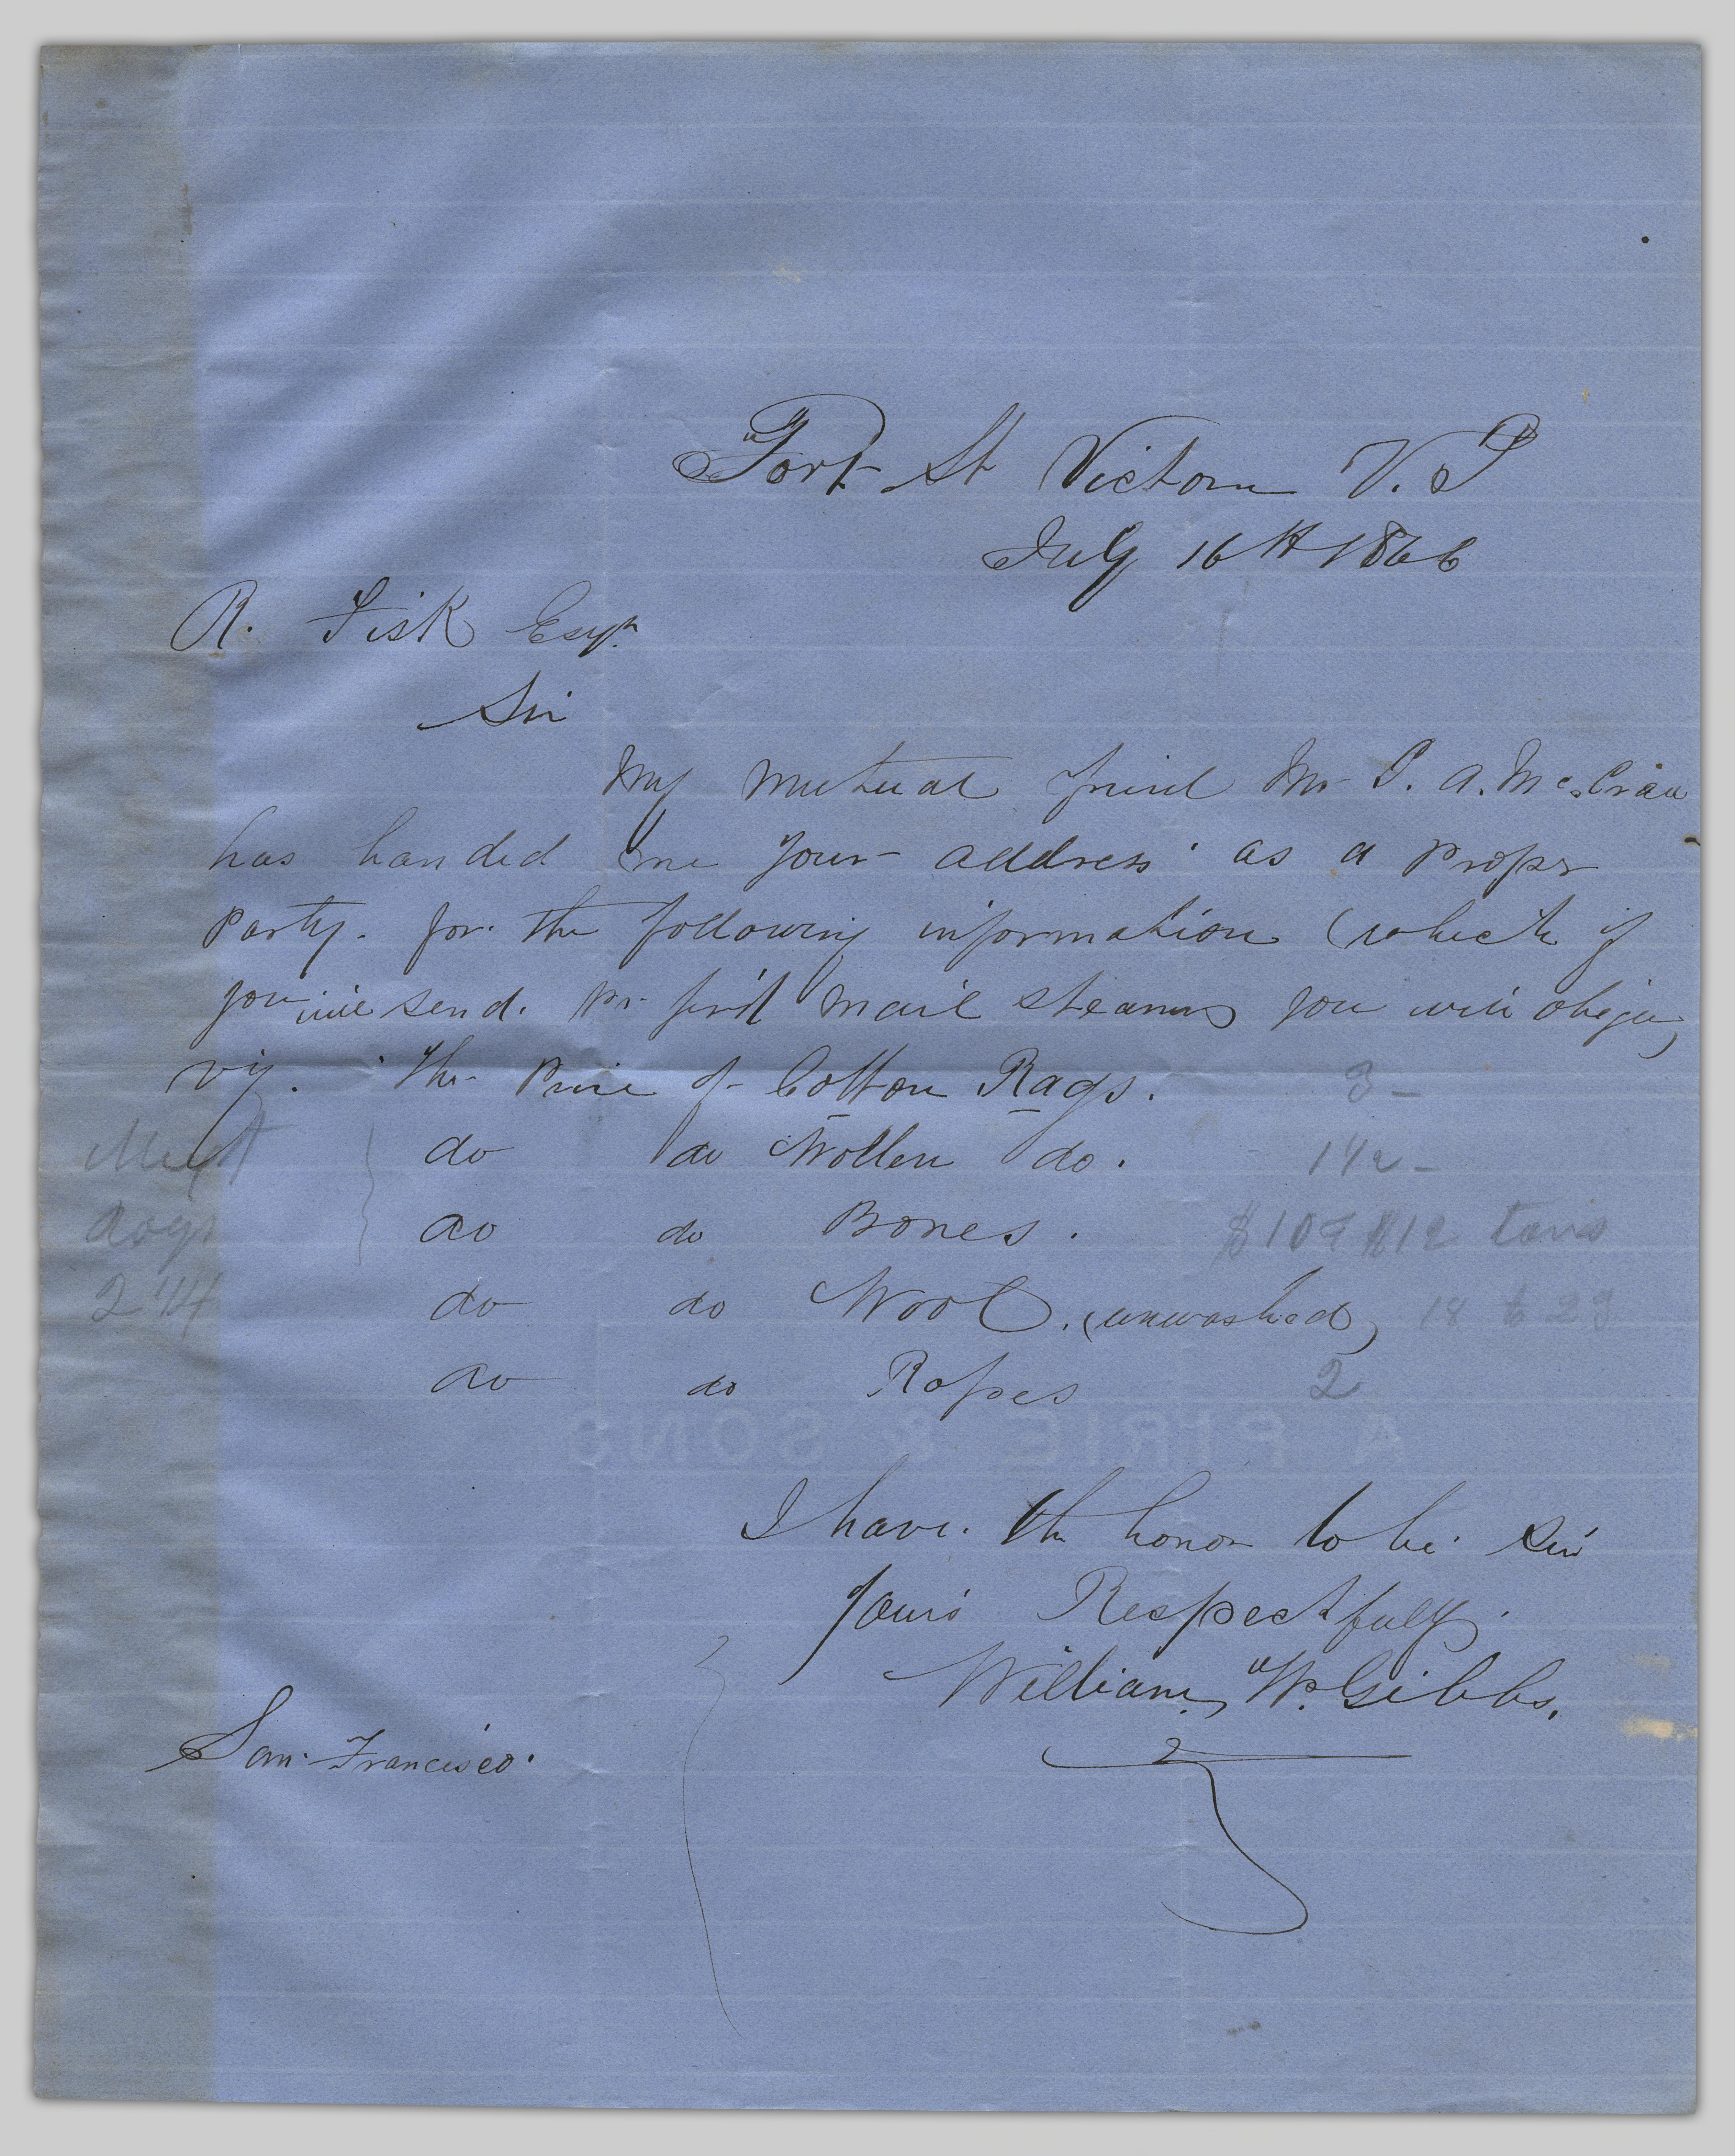 Fort St Victoria V. I
July 16th 1866
R. Fisk Esqr.
Sir
My mutual friend Mr. P. A. McCrea
has handed me your address as a proper
Party. for. the following information (which if
you will send. pr. first mail steamer you will oblige)
viz. The Price of Cotton Rags. 3 -
do do Wollen do. 1 1/2 -
do do Bones. $10 @ $12 tons
do do Wool. (unwashed) 18 to 23
do do Ropes 2
Mixt
Rags
2 1/4
A PIRIE & SONS
I have. the honor to be. Sir
Yours Respectfully.
William W. Gibbs.
San. Francisco.